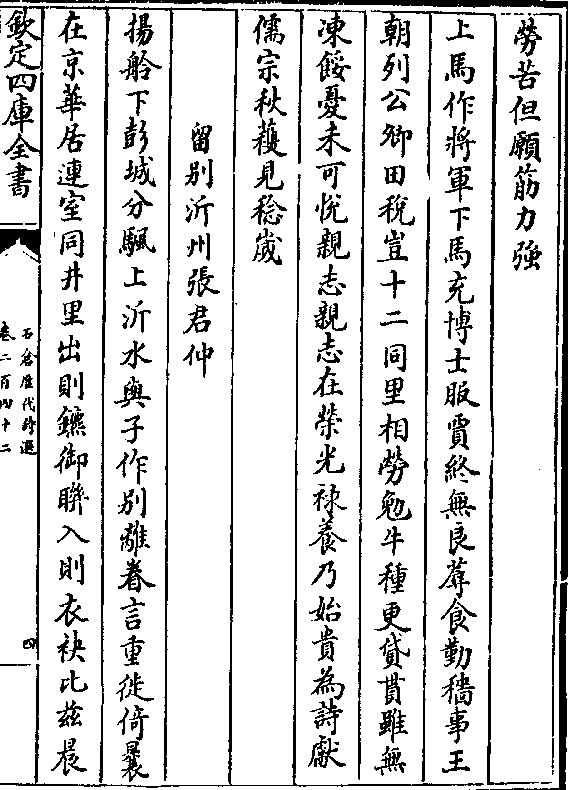 勞苦但願筋力強
上馬作將軍下馬充博士服賈終無良蓐食勤穡事王
朝列公卿田稅豈十二同里相勞勉牛種更貸貰雖無
凍餒憂未可悅親志親志在榮光祿養乃始貴為詩獻
儒宗秋穫見稔歲
留别沂州張君仲
揚舲下彭城分颿上沂水與子作别離眷言重徙倚曩
在京華居連室同井里出則鑣御聯入則衣袂比兹晨
欽定四庫全書
石倉歷代詩選
卷二百四十二
四